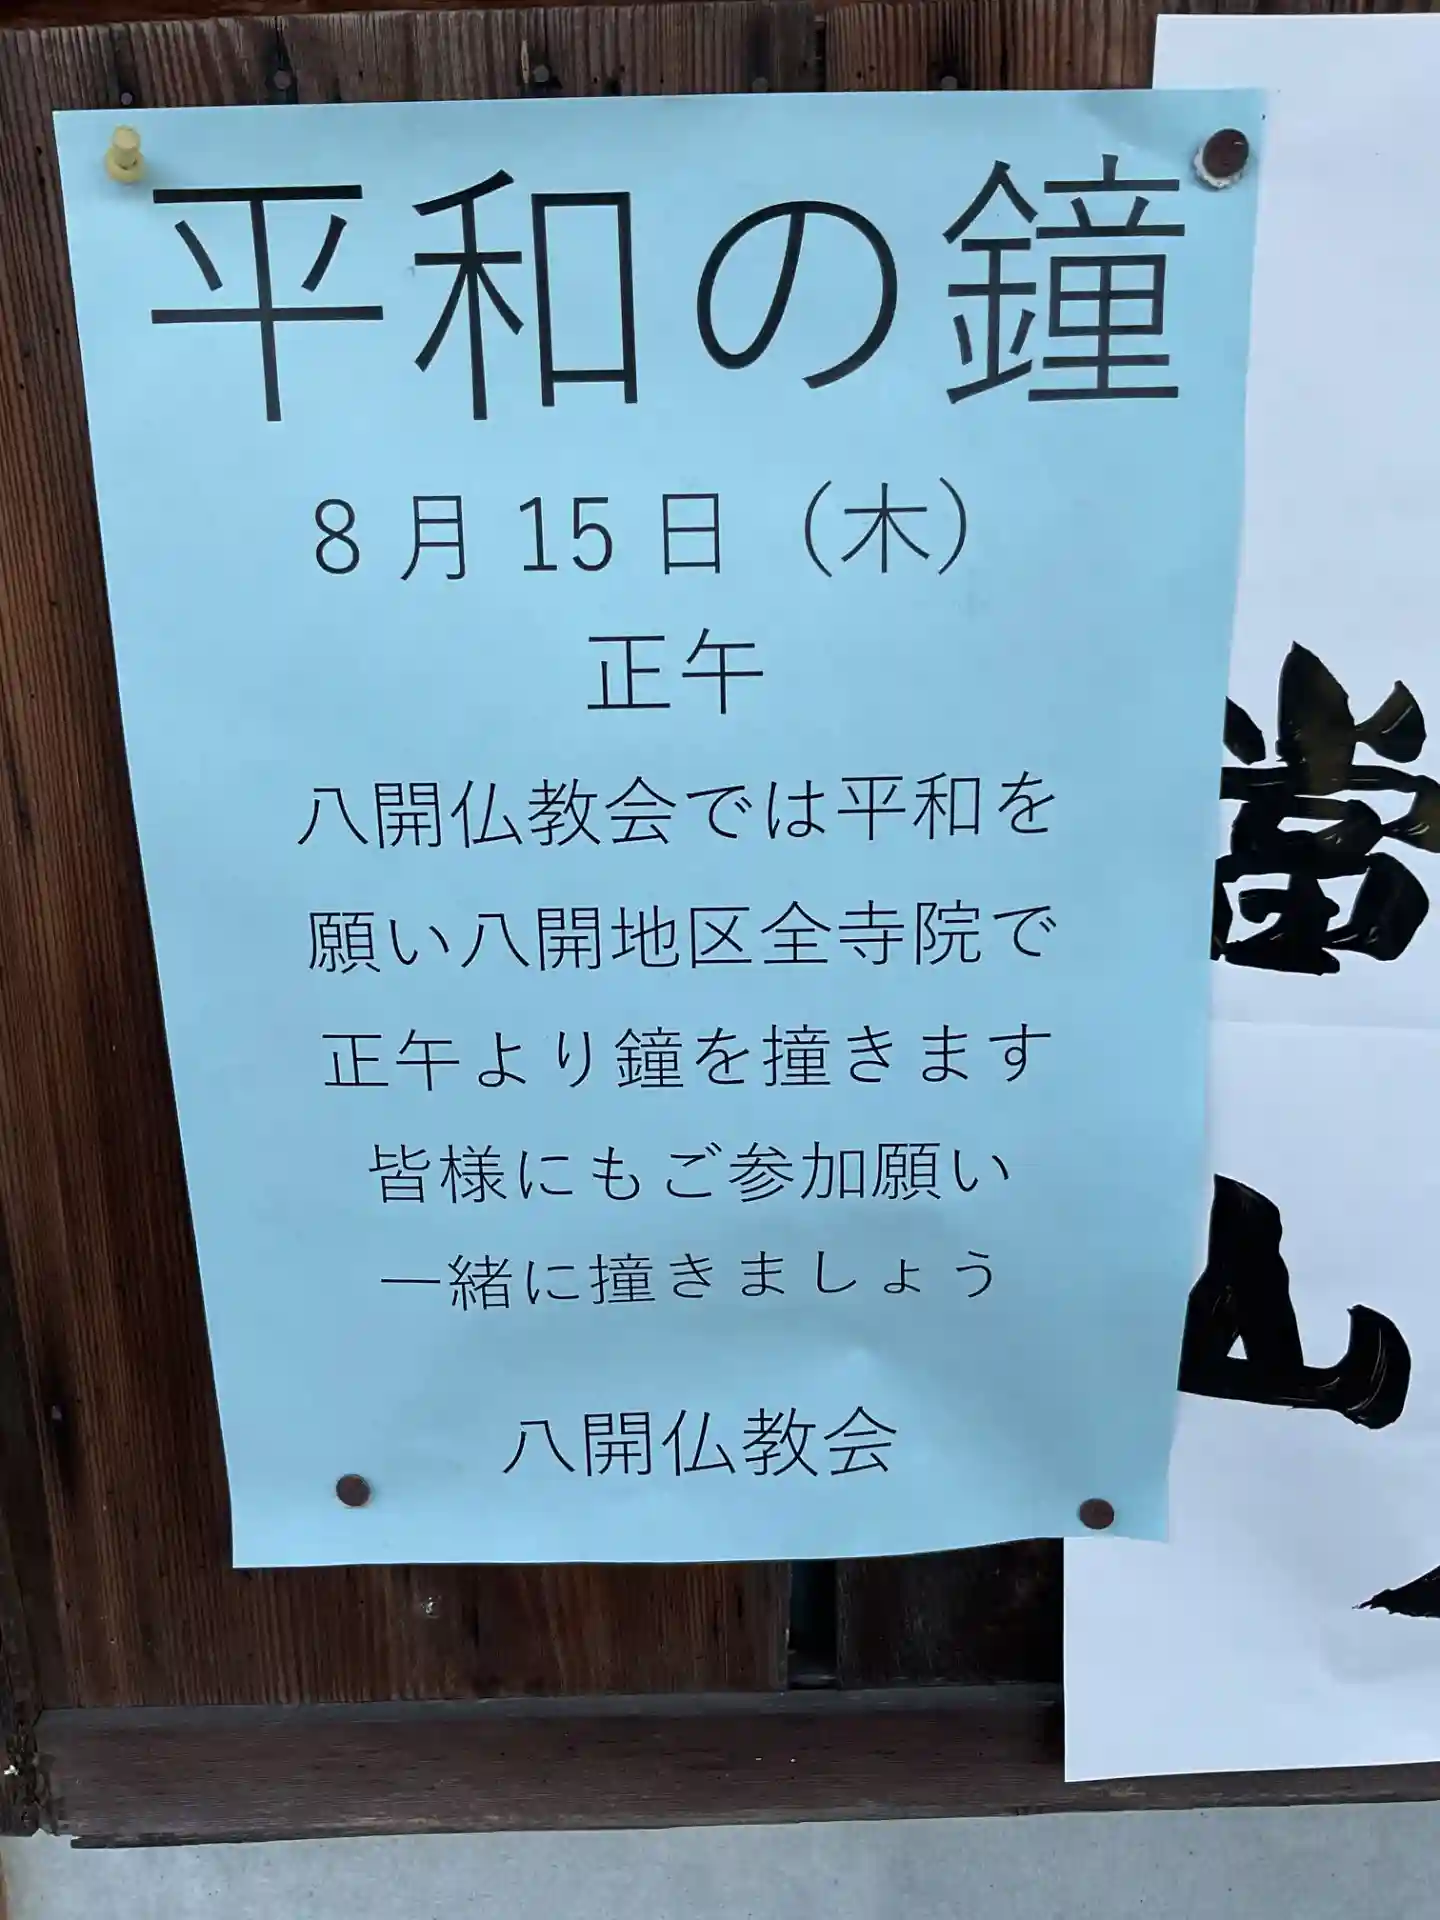 平和の鐘
8月15日（木）
正午
八開仏教会では平和を
願い八開地区全寺院で
正午より鐘を撞きます
皆様にもご参加願い
一緒に撞きましょう
八開仏教会